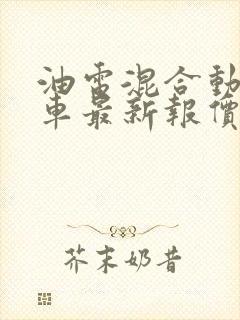 油電混合動
車最新報價
芥末奶昔